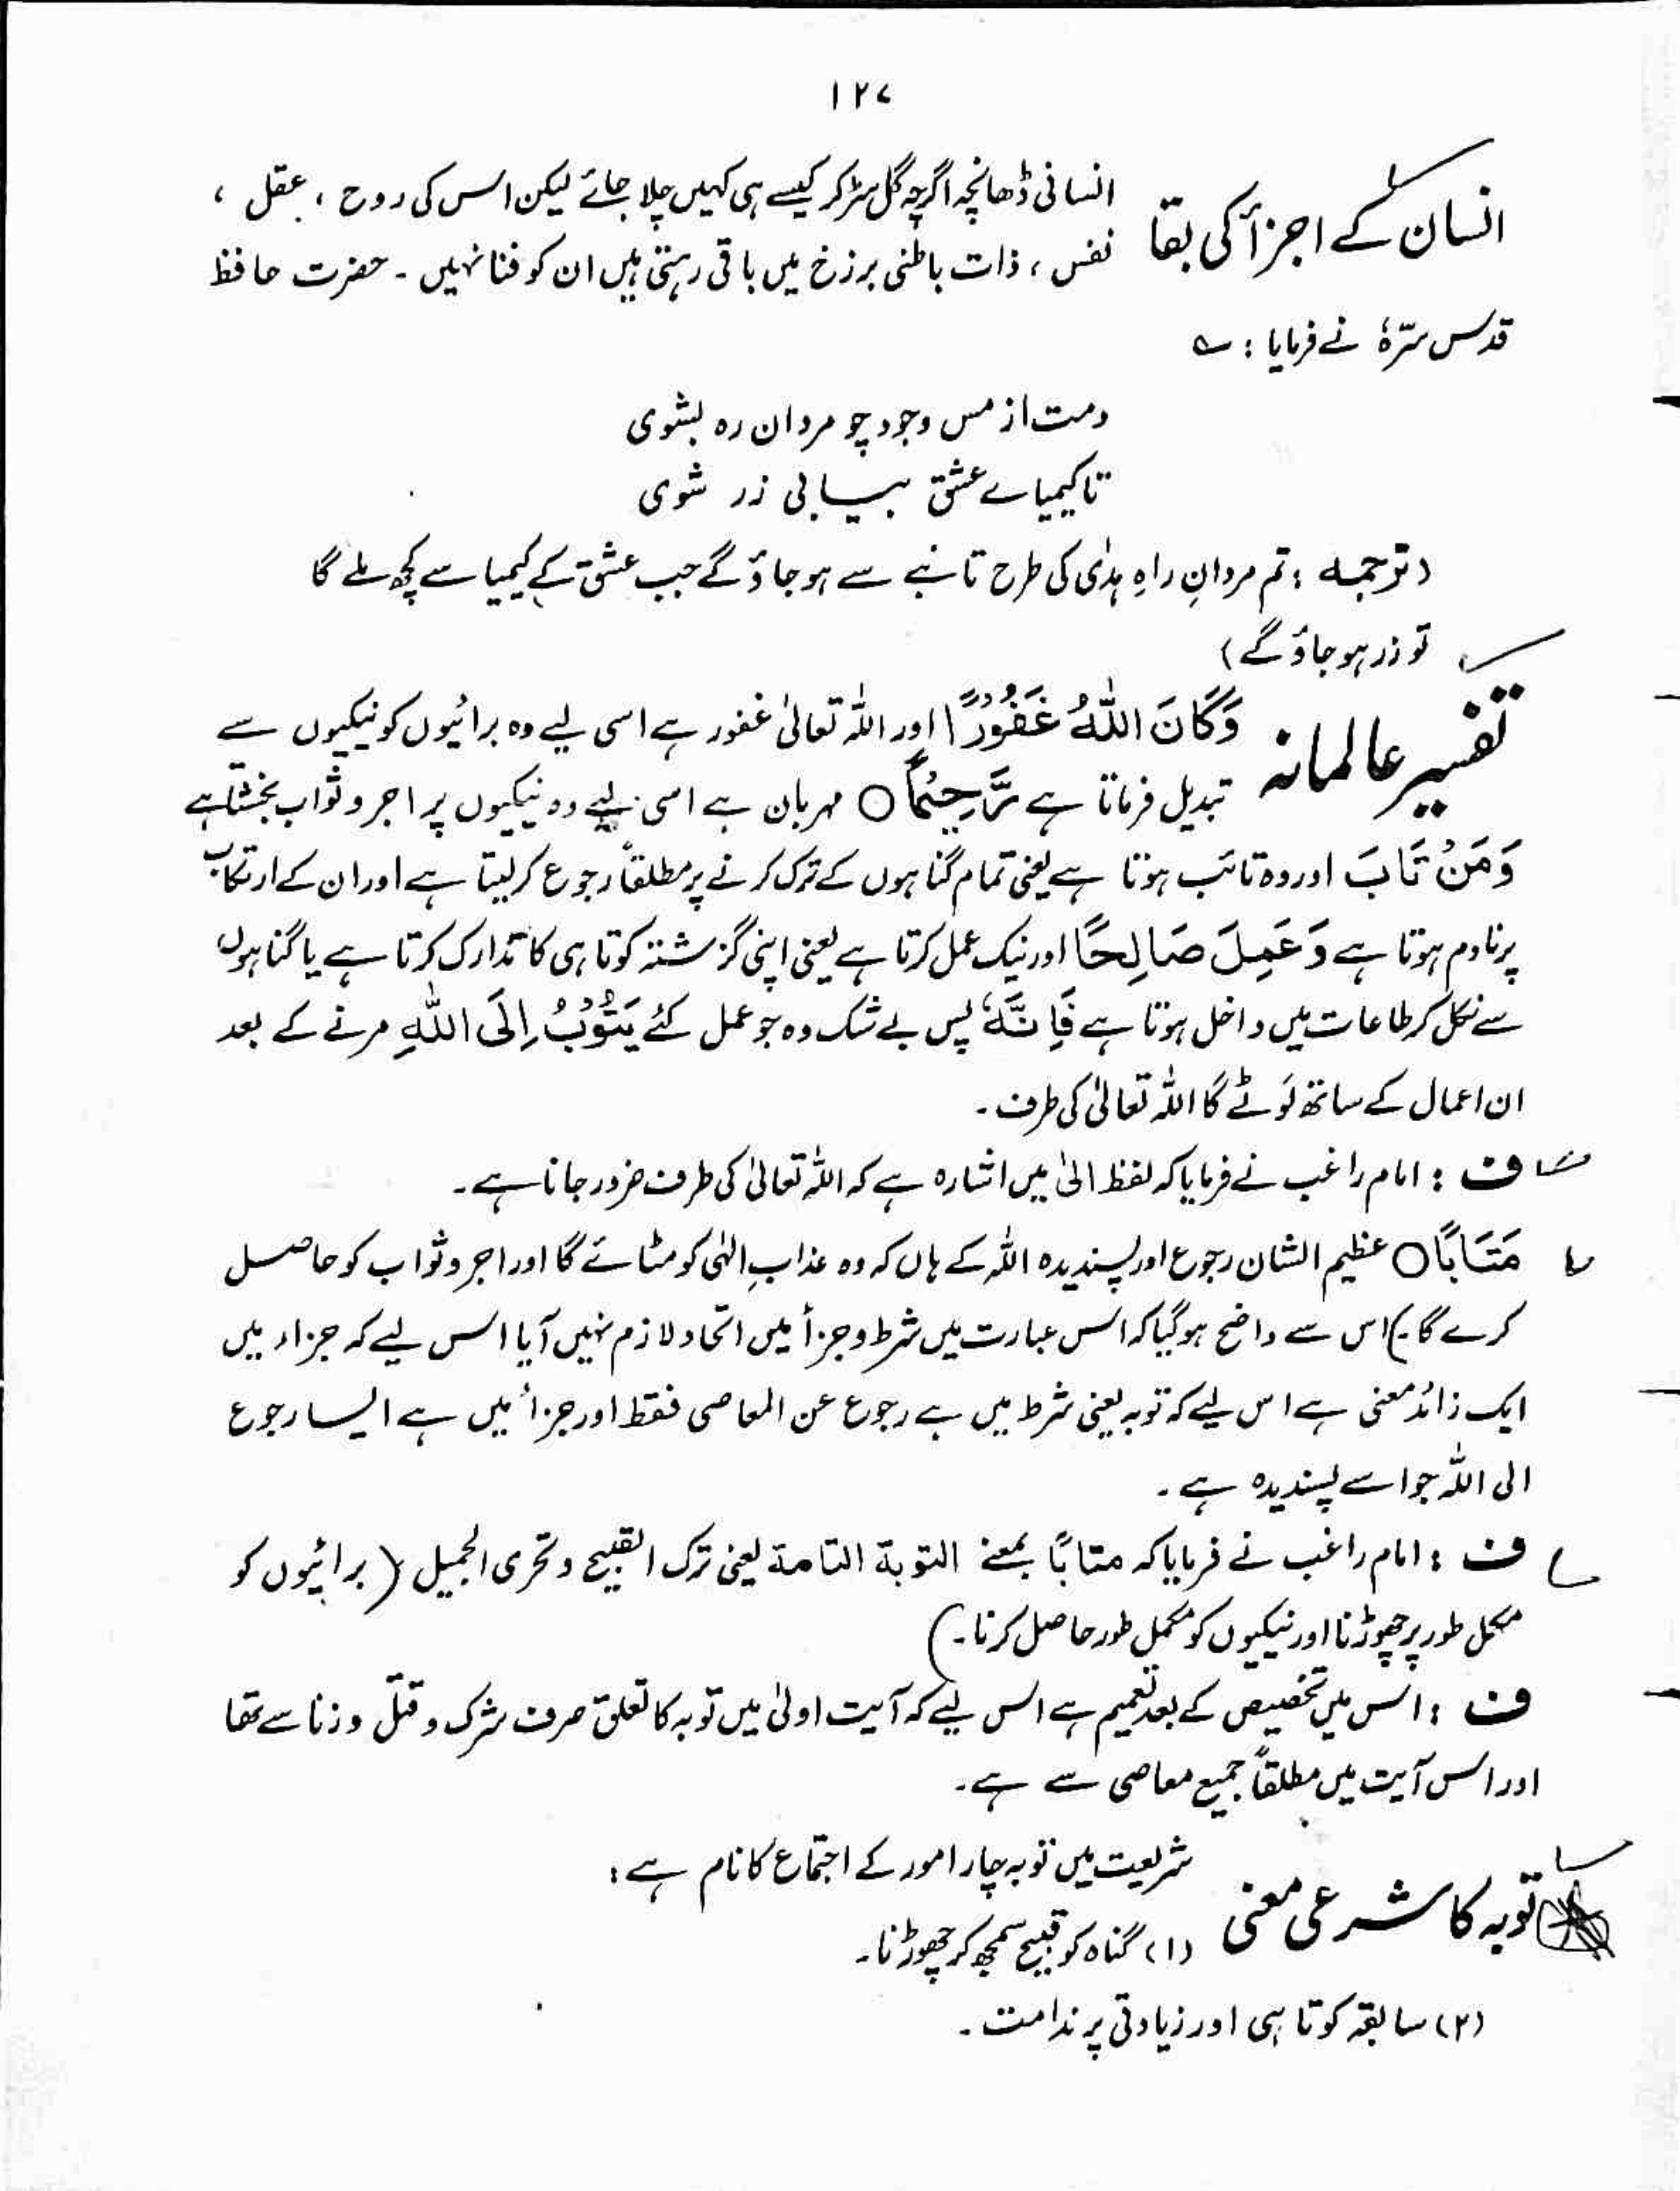 ۱۲۷
انسان کے اجزأ کی بقا
انسانی ڈھانچہ اگرچہ گل سڑ کر کیسے ہی کہیں چلا جائے لیکن اس کی روح ، عقل ،
نفس ، ذات باطنی برزخ میں باقی رہتی ہیں ان کو فنا نہیں ۔ حضرت حافظ
قدس سرّہٗ نے فرمایا : ؎
دست از مس وجود چو مردان رہ بشوی
تا کیمیائے عشق بیابی زر شوی
(ترجمہ : تم مردانِ راہِ ہدٰی کی طرح تانبے سے ہو جاؤ گے جب عشق کے کیمیا سے کچھ ملے گا
تو زر ہو جاؤ گے)
تفسیر عالمانہ
وَكَانَ اللّٰهُ غَفُوْرًا اور اللہ تعالیٰ غفور ہے اسی لیے وہ برائیوں کو نیکیوں سے
تبدیل فرماتا ہے رَّحِيْمًا ○ مہربان ہے اسی لیے وہ نیکیوں پر اجر و ثواب بخشتا ہے
وَمَنْ تَابَ اور وہ تائب ہوتا ہے یعنی تمام گناہوں کے ترک کرنے پر مطلقاً رجوع کر لیتا ہے اور ان کے ارتکاب
پر نادم ہوتا ہے وَعَمِلَ صَالِحًا اور نیک عمل کرتا ہے یعنی اپنی گزشتہ کوتاہی کا تدارک کرتا ہے یا گناہوں
سے نکل کر طاعات میں داخل ہوتا ہے فَاِنَّهٗ پس بے شک وہ جو عمل کئے يَتُوْبُ اِلَى اللّٰهِ مرنے کے بعد
ان اعمال کے ساتھ لَوٹے گا اللہ تعالیٰ کی طرف ۔
ف : امام راغب نے فرمایا کہ لفظ الیٰ میں اشارہ ہے کہ اللہ تعالیٰ کی طرف ضرور جانا ہے ۔
مَتَابًا ○ عظیم الشان رجوع اور پسندیدہ اللہ کے ہاں کہ وہ عذابِ الٰہی کو مٹائے گا اور اجر و ثواب کو حاصل
کرے گا ۔) اس سے واضح ہو گیا کہ اس عبارت میں شرط و جزأ میں اتحاد لازم نہیں آیا اس لیے کہ جزاء میں
ایک زائد معنی ہے اس لیے کہ توبہ یعنی شرط میں ہے رجوع عن المعاصی فقط اور جزأ میں ہے ایسا رجوع
الی اللہ جو اسے پسندیدہ ہے ۔
ف : امام راغب نے فرمایا کہ متابًا بمعنے التوبة التامة یعنی ترک القبیح و تحری الجمیل (برائیوں کو
مکمل طور پر چھوڑنا اور نیکیوں کو مکمل طور حاصل کرنا ۔)
ف : اس میں تخصیص کے بعد تعمیم ہے اس لیے کہ آیت اولیٰ میں توبہ کا تعلق صرف شرک و قتل و زنا سے تھا
اور اس آیت میں مطلقاً جمیع معاصی سے ہے ۔
توبہ کا شرعی معنی
شریعت میں توبہ چار امور کے اجتماع کا نام ہے :
(۱) گناہ کو قبیح سمجھ کر چھوڑنا ۔
(۲) سابقہ کوتاہی اور زیادتی پر ندامت ۔